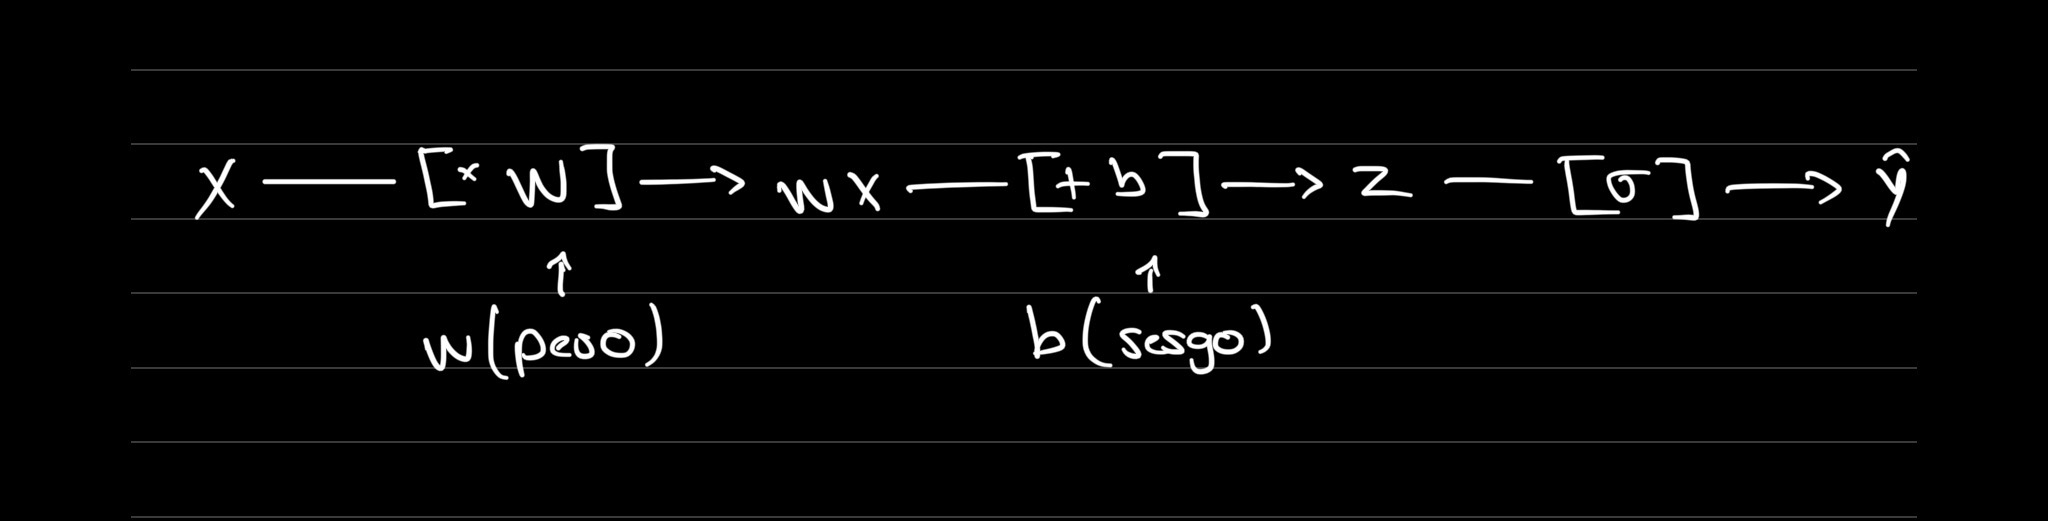 X — [× W] → wx — [+ b] → z — [σ] → ŷ
↑ ↑
w(peso) b(sesgo)